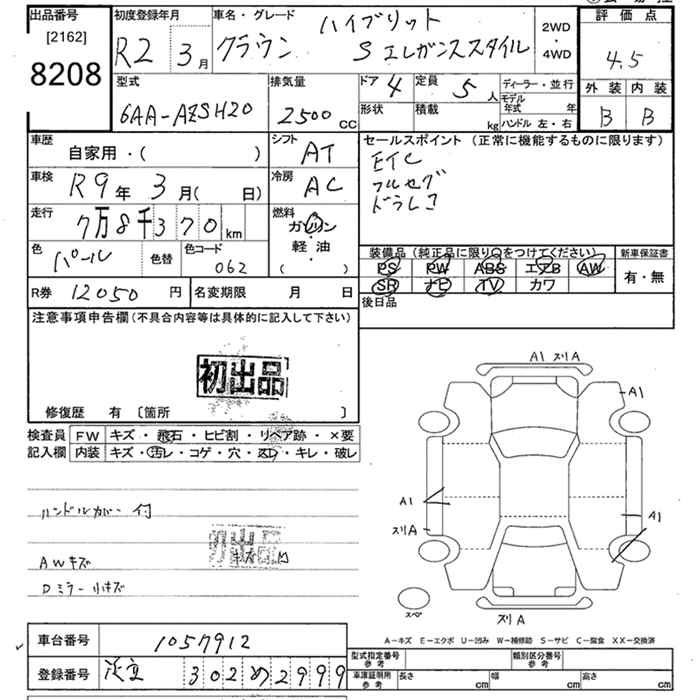 出品番号
[2162]
8208
初度登録年月
R2 3月
車名・グレード
ハイブリット
クラウン Sエレガンススタイル
2WD
・
4WD
評価点
4.5
外装 内装
B B
型式
6AA-AZSH20
排気量
2500cc
ドア 4
定員 5人
形状
積載 kg
ディーラー・並行
モデル年式 年
ハンドル 左・右
車歴
自家用・( )
シフト
AT
車検
R9年3月( 日)
冷房
AC
走行
7万8千370km
燃料
ガソリン
・
軽油
・
( )
色
パール
色替
色コード
062
R券 12050円
名変期限 月 日
セールスポイント(正常に機能するものに限ります)
ETC
フルセグ
ドラレコ
装備品(純正品に限り○をつけてください)
PS PW ABS エアB AW
SR ナビ TV カワ
新車保証書
有・無
後日品
注意事項申告欄(不具合内容等は具体的に記入して下さい)
初出品
修復歴 有 [箇所 ]
検査員
記入欄
FW キズ・飛石・ヒビ割・リペア跡・×要
内装 キズ・汚レ・コゲ・穴・スレ・キレ・破レ
ハンドルカバー付
AWキズ
Dミラー小キズ
初出品
A1 スリA
A1
A1
スリA
A1
スリA
スペ
A-キズ E-エクボ U-凹み W-補修跡 S-サビ C-腐食 XX-交換済
車台番号 1057912
登録番号 足立 302 め 2999
型式指定番号
参考
類別区分番号
参考
車庫証明用
参考
長さ cm
幅 cm
高さ cm